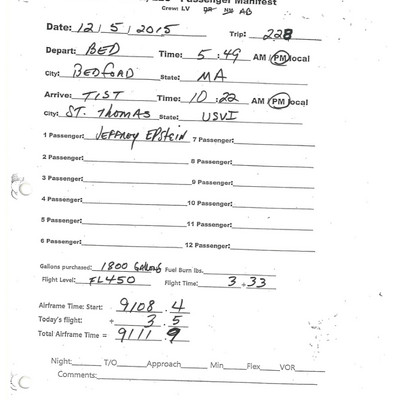 Passenger Manifest
Crew: LV AB
Date: 12/5/2015 Trip: 228
Depart: BED Time: 5:49 AM/PM local
City: BEDFORD State: MA
Arrive: TIST Time: 10:22 AM/PM local
City: ST. THOMAS State: USVI
1 Passenger: JEFFREY EPSTEIN 7 Passenger:
2 Passenger: 8 Passenger:
3 Passenger: 9 Passenger:
4 Passenger: 10 Passenger:
5 Passenger: 11 Passenger:
6 Passenger: 12 Passenger:
Gallons purchased: 1800 GALLONS Fuel Burn lbs.
Flight Level: FL450 Flight Time: 3+33
Airframe Time: Start: 9108.4
Today's flight: + 3.5
Total Airframe Time = 9111.9
Night: T/O Approach Min Flex VOR
Comments: